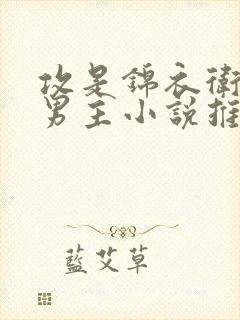 攻是錦衣衛
男主小說推
藍艾草